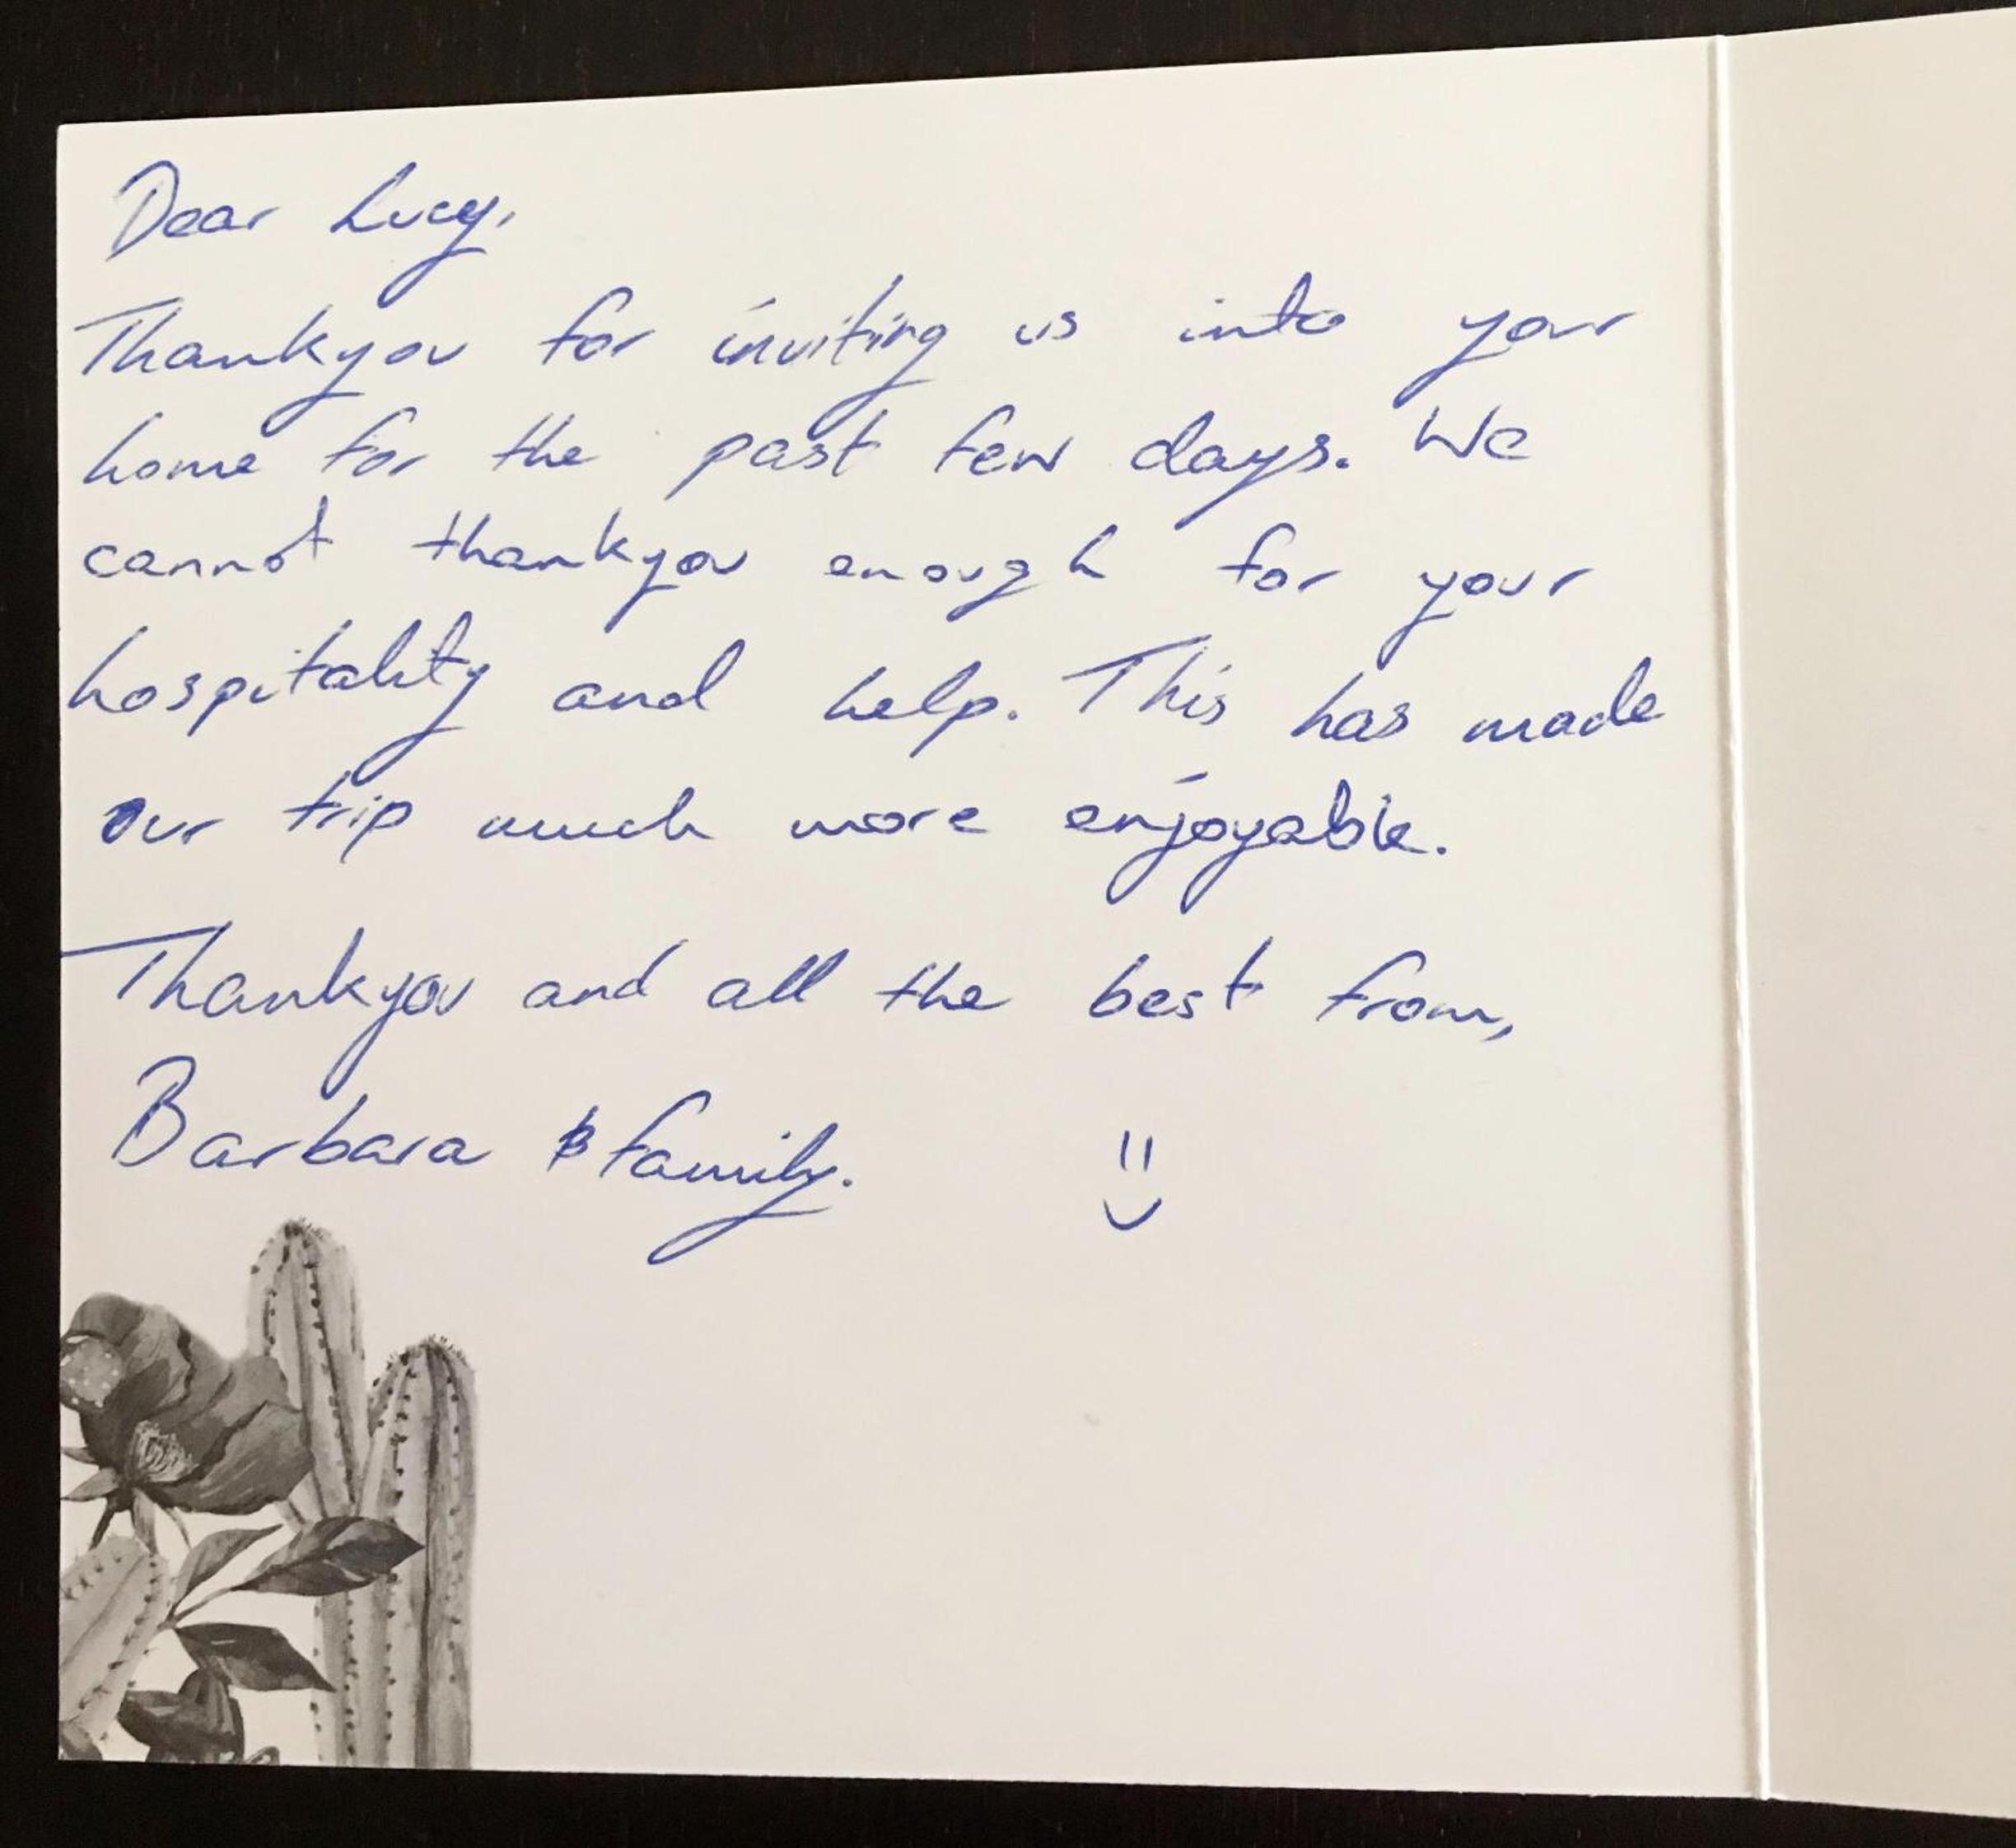 Dear Lucy,
Thankyou for inviting us into your
home for the past few days. We
cannot thankyou enough for your
hospitality and help. This has made
our trip much more enjoyable.
Thankyou and all the best from,
Barbara & family. =)